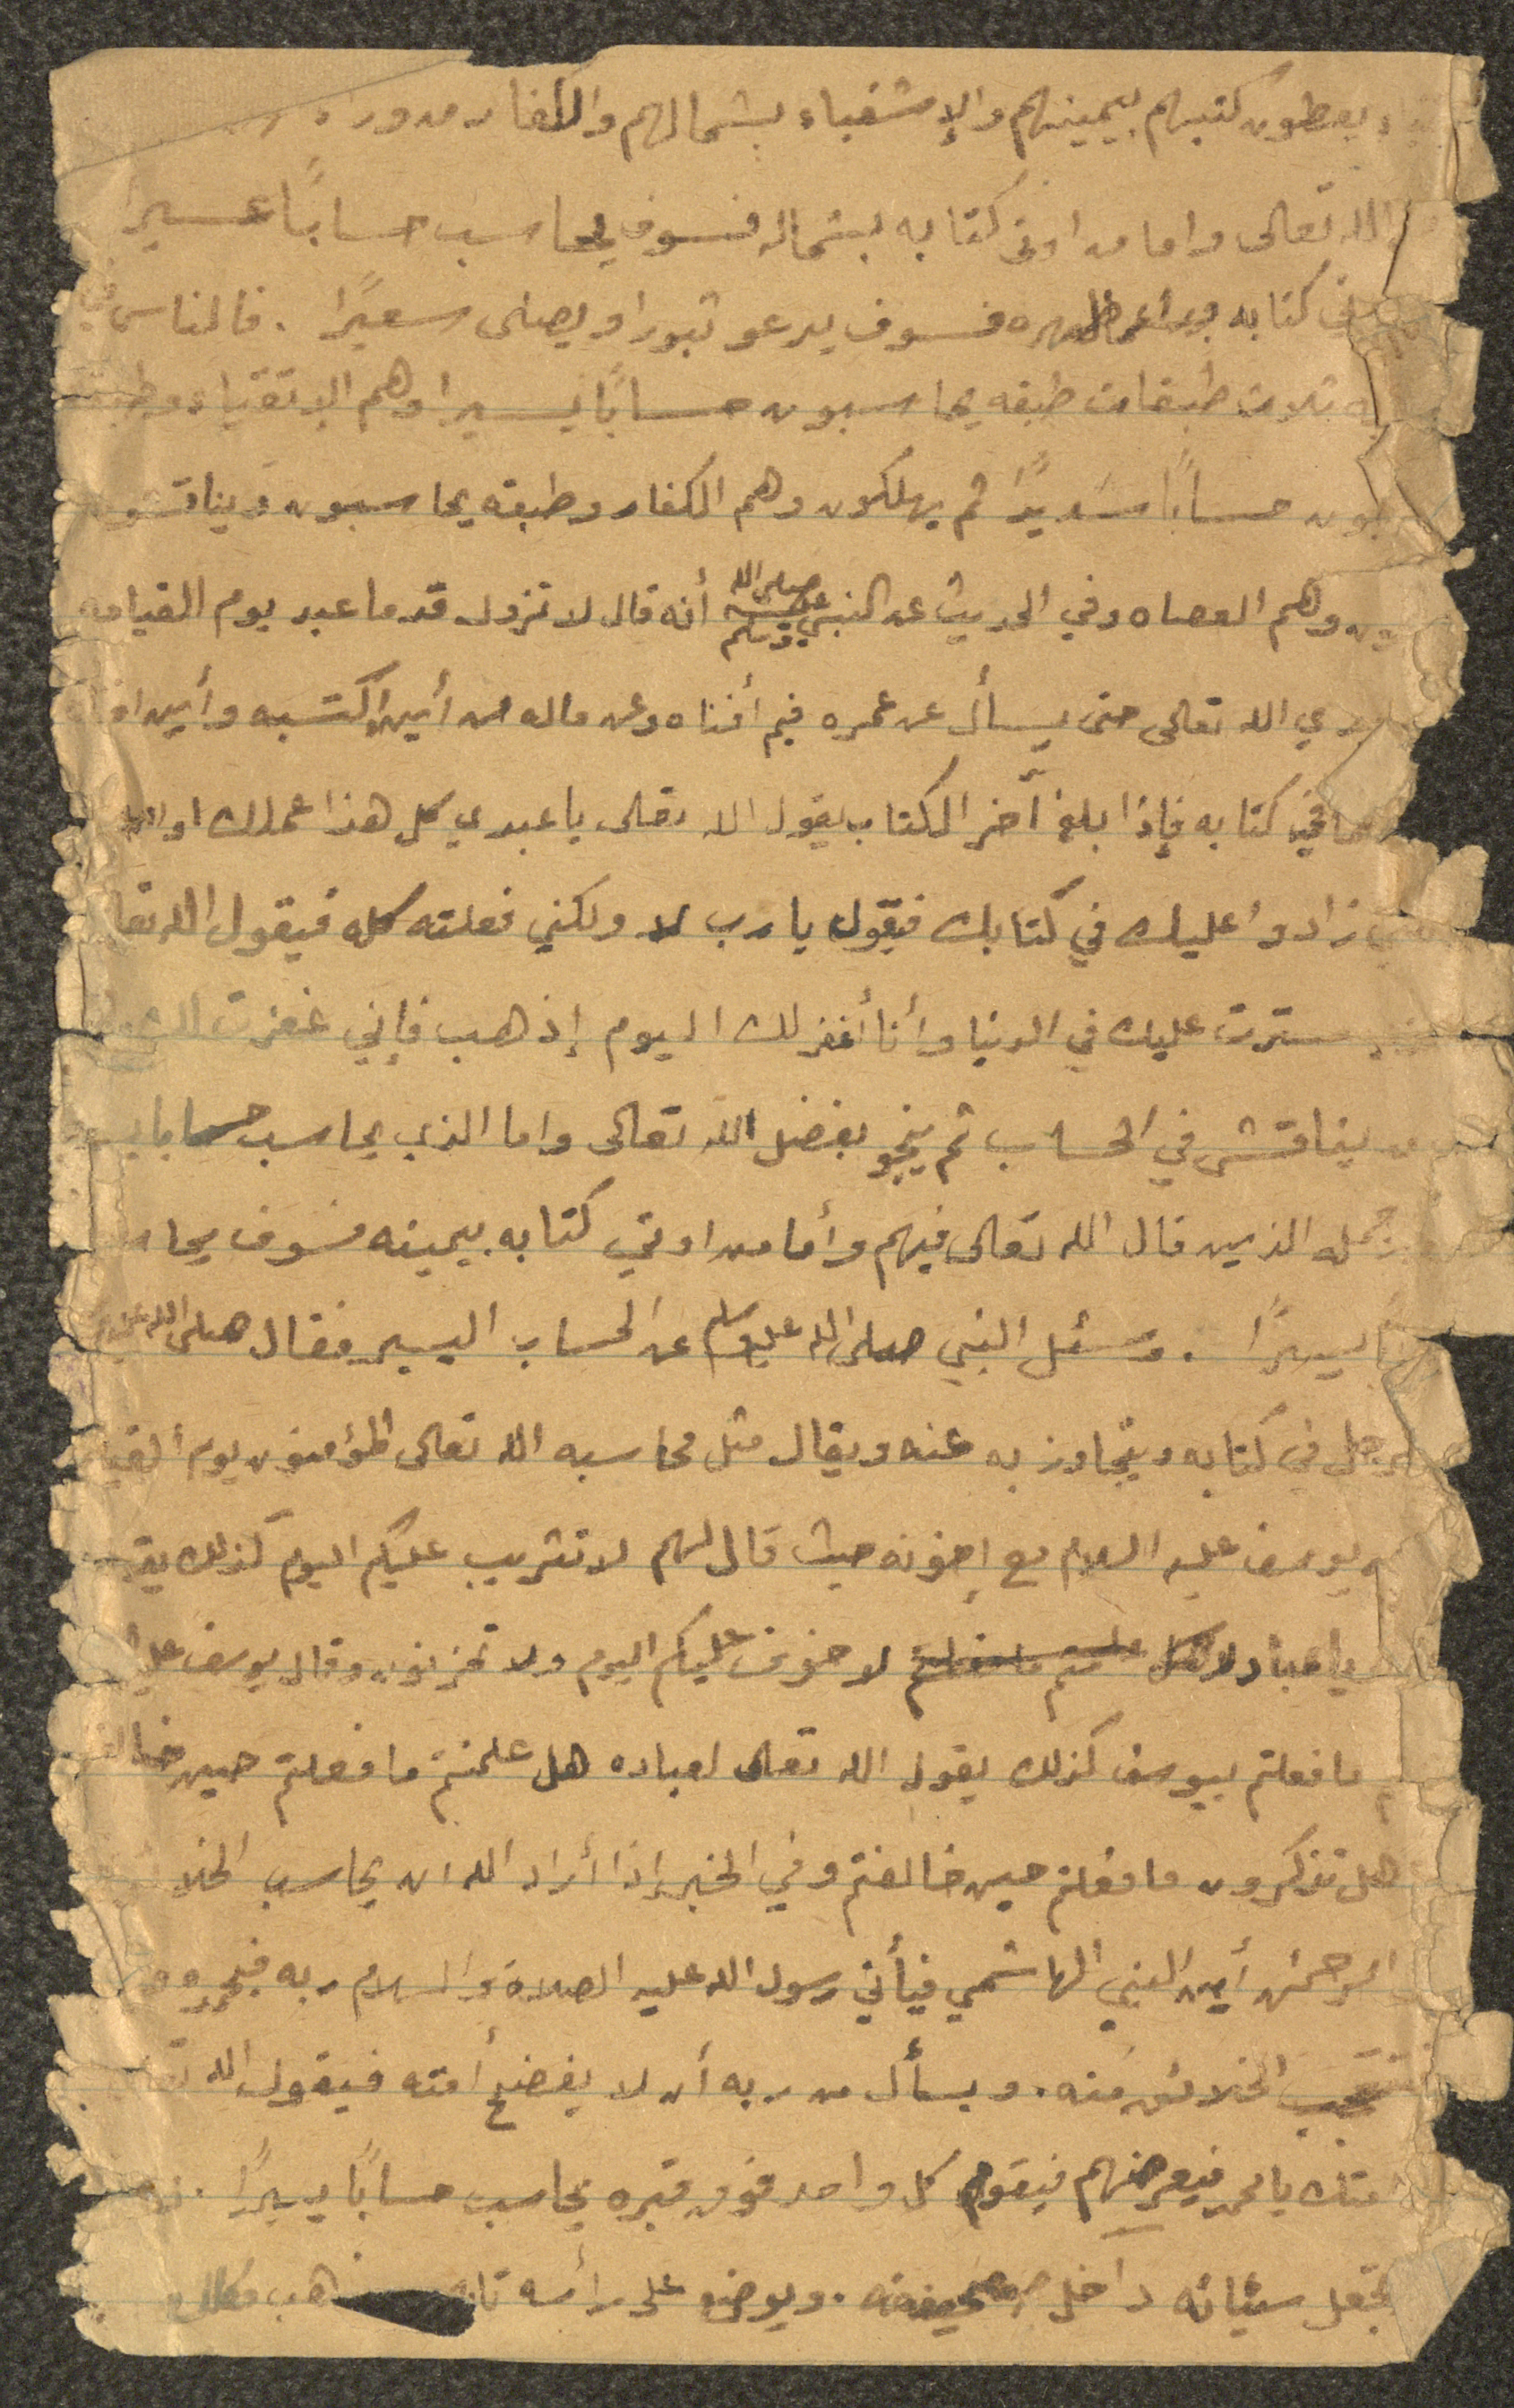 يعطون كتبهم بيمينهم والإشقياء بشمالهم والكفار من وراء
الله تعالى واما من اوتى كتابه بشماله فسوف يحاسب حسابًا عسيرا
كتابه وراء ظهره فسوف يدعو ثبورا ويصلى سعيرًا . فالناس في
ثلاث طبقات طبقه يحاسبون حسابًا يسيرا وهم الإتقياء وطبقة
حسابًا شديدًا ثم يهلكون وهم الكفار وطبقه يحاسبون ويناقشون
وهم العصاه وفي الحديث عن النبي صلى الله عليه وسلم أنه قال لا تزول قدما عبد يوم القيامه
يدي الله تعالى حتى يسأل عن عمره فيم أفناه وعن ماله من أين اكتسبه وأين
ما في كتابه فإذا بلغ آخر الكتاب يقول الله تعالى يا عبدي كل هذا عملك او
زادوا عليك في كتابك فيقول يا رب لا ولكني فعلته كله فيقول الله تعا
سترت عليك في الدنيا وأنا أغفر لك اليوم إذهب فإني غفرت لك
يناقش في الحساب ثم ينجو بفضل الله تعالى واما الذي يحاسب حسابا يسـ
جمله الذين قال الله تعالى فيهم وأما من اوتي كتابه بيمينه فسوف يحا
يسيرًا . وسئل النبي صلى الله عليه وسلم عن الحساب اليسير فقال صلى الله عليه
الرجل في كتابه ويتجاوز به عنه ويقال مثل محاسبه الله تعالى المؤمنون يوم القيا
يوسف عليه السلام مع إخوته حيث قال لهم لا تثريب عليكم اليوم كذلك يقـ
يا عباد لا خوف عليكم اليوم ولا تحزنون وقال يوسف عليه
ما فعلتم بيوسف كذلك يقول الله تعالى لعباده هل علمتم ما فعلتم حين خالفـ
هل تذكرون ما فعلتم حين خالفتم وفي الخبر إذا أراد الله ان يحاسب الخلا
الرحمن أين النبي الهاشمي فيأتي رسول الله عليه الصلاة والسلام ربه فيحمده
تتعجب الخلائق منه . ويسأل من ربه أن لا يفضح أمته فيقول الله تعا
متك يا محمد فيعرضهم فيقوم كل واحد فوق قبره يحاسب حسابًا يسيرًا .
تجعل سيئاته داخل صحيفته . ويوضع على رأسه تا